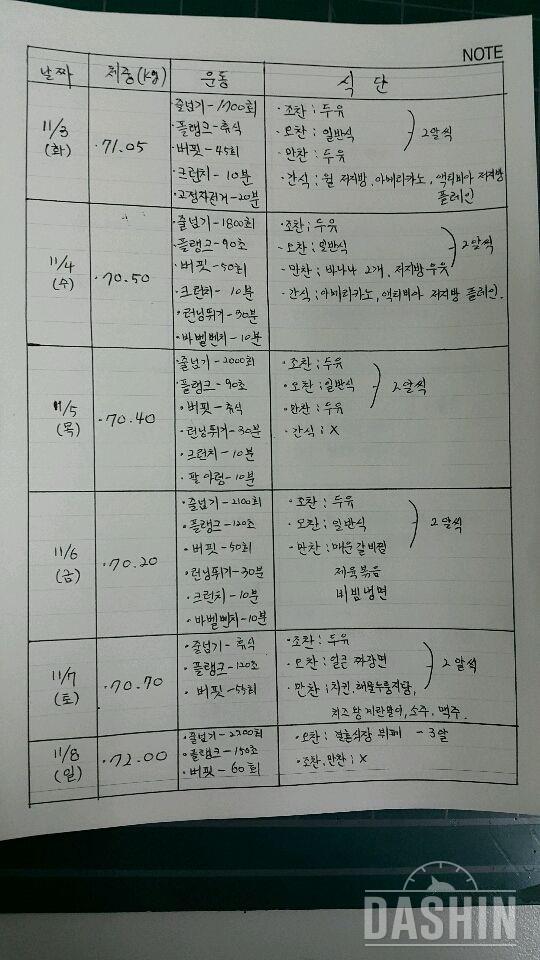 NOTE
날짜 체중(kg) 운동 식단
11/3
(화)
·71.05
·줄넘기-1700회
·플랭크-휴식
·버핏-45회
·크런치-10분
·고정자전거-20분
·조찬;두유
·오찬;일반식
·만찬;두유
2알씩
·간식;월 저지방,아메리카노,액티비아 저지방
플레인
11/4
(수)
·70.50
·줄넘기-1800회
·플랭크-90초
·버핏-50회
·크런치-10분
·런닝뛰기-30분
·바벨벤치-10분
·조찬;두유
·오찬;일반식
·만찬;바나나 2개, 저지방우유
2알씩
·간식;아메리카노,액티비아 저지방 플레인.
11/5
(목)
·70.40
·줄넘기-2000회
·플랭크-90초
·버핏-휴식
·런닝뛰기-30분
·크런치-10분
·팔아령-10분
·조찬;두유
·오찬;일반식
·만찬;두유
2알씩
·간식;X
11/6
(금)
·70.20
·줄넘기-2100회
·플랭크-120초
·버핏-50회
·런닝뛰기-30분
·크런치-10분
·바벨벤치-10분
·조찬;두유
·오찬;일반식
·만찬;매운갈비찜
제육볶음
비빔냉면
2알씩
11/7
(토)
·70.70
·줄넘기-휴식
·플랭크-120초
·버핏-55회
·조찬:두유
·오찬:얼큰 짜장면
·만찬;치킨,해물누룽지탕,
치즈왕계란말이,소주,맥주.
2알씩
11/8
(일)
·72.00
·줄넘기-2200회
·플랭크-150초
·버핏-60회
·오찬;결혼식장 뷔페 -3알
·조찬,만찬;X
DASHIN